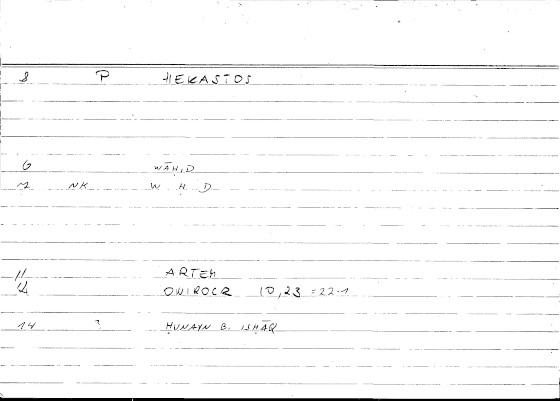 8 P HEKASTOS
6 WĀḤID
NK W Ḥ D
11 ARTEM
12 ONIROCR 10,23 = 22-1
14 ? ḤUNAYN B. ISḤĀQ